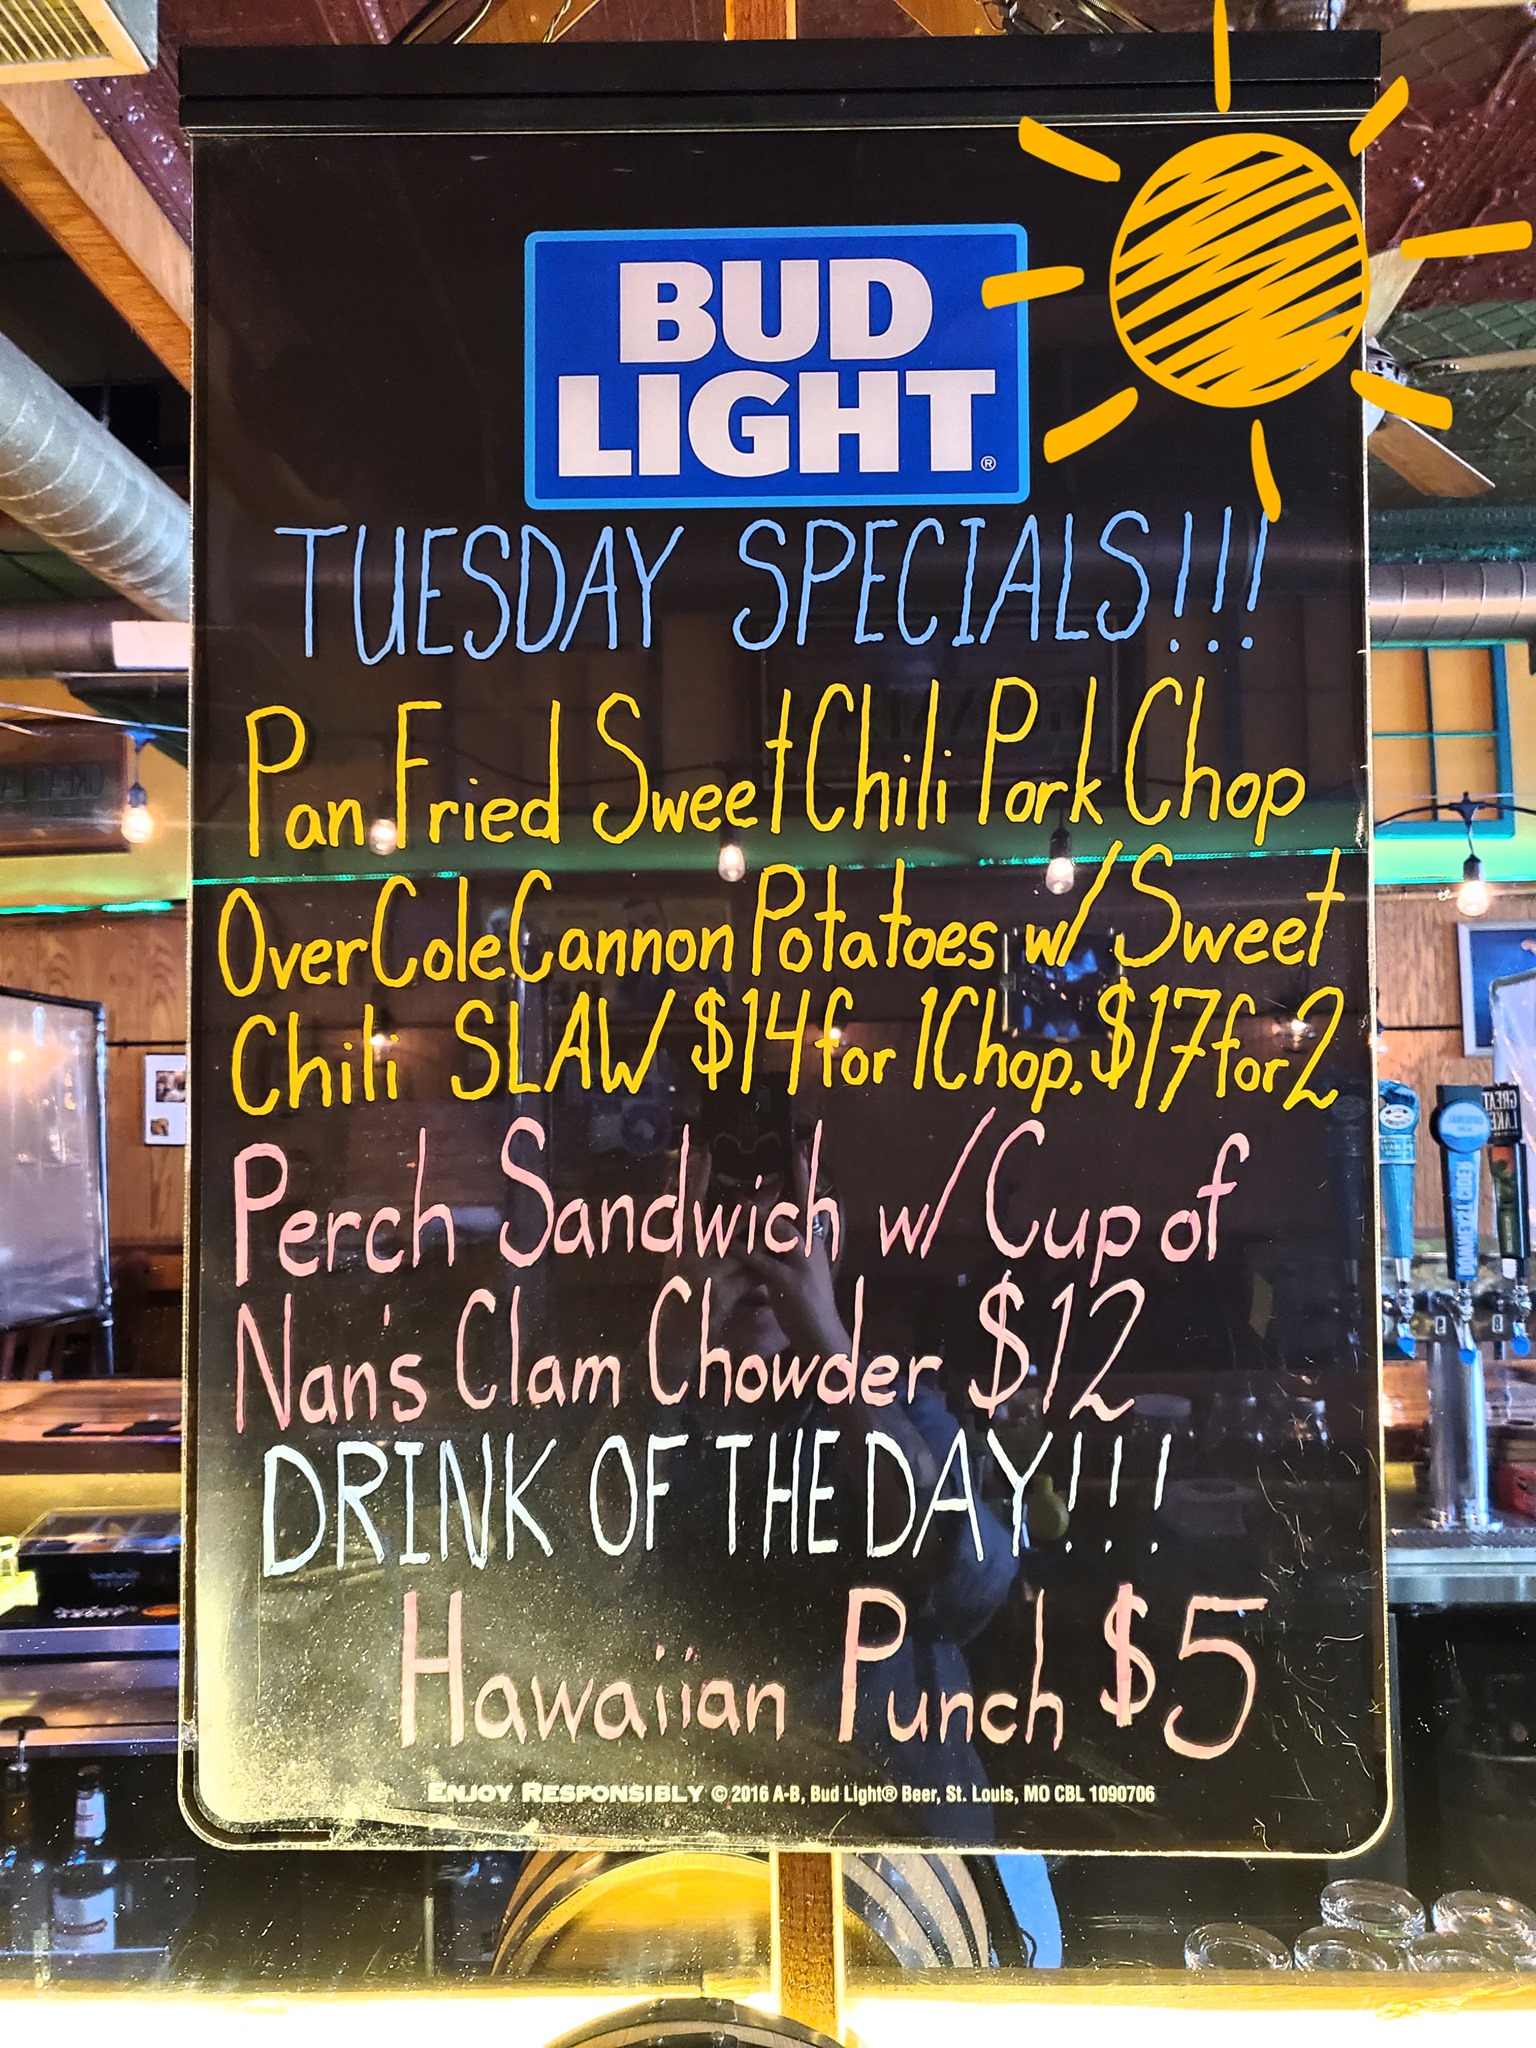 BUD
LIGHT®
TUESDAY SPECIALS!!!
Pan Fried Sweet Chili Pork Chop
Over Cole Cannon Potatoes w/ Sweet
Chili SLAW $14 for 1 Chop, $17 for 2
Perch Sandwich w/ Cup of
Nan's Clam Chowder $12
DRINK OF THE DAY!!!
Hawaiian Punch $5
ENJOY RESPONSIBLY © 2016 A-B, Bud Light® Beer, St. Louis, MO CBL 1090706
GREAT
LAKE
ORIGINAL
DOWNEY'S CIDER
8